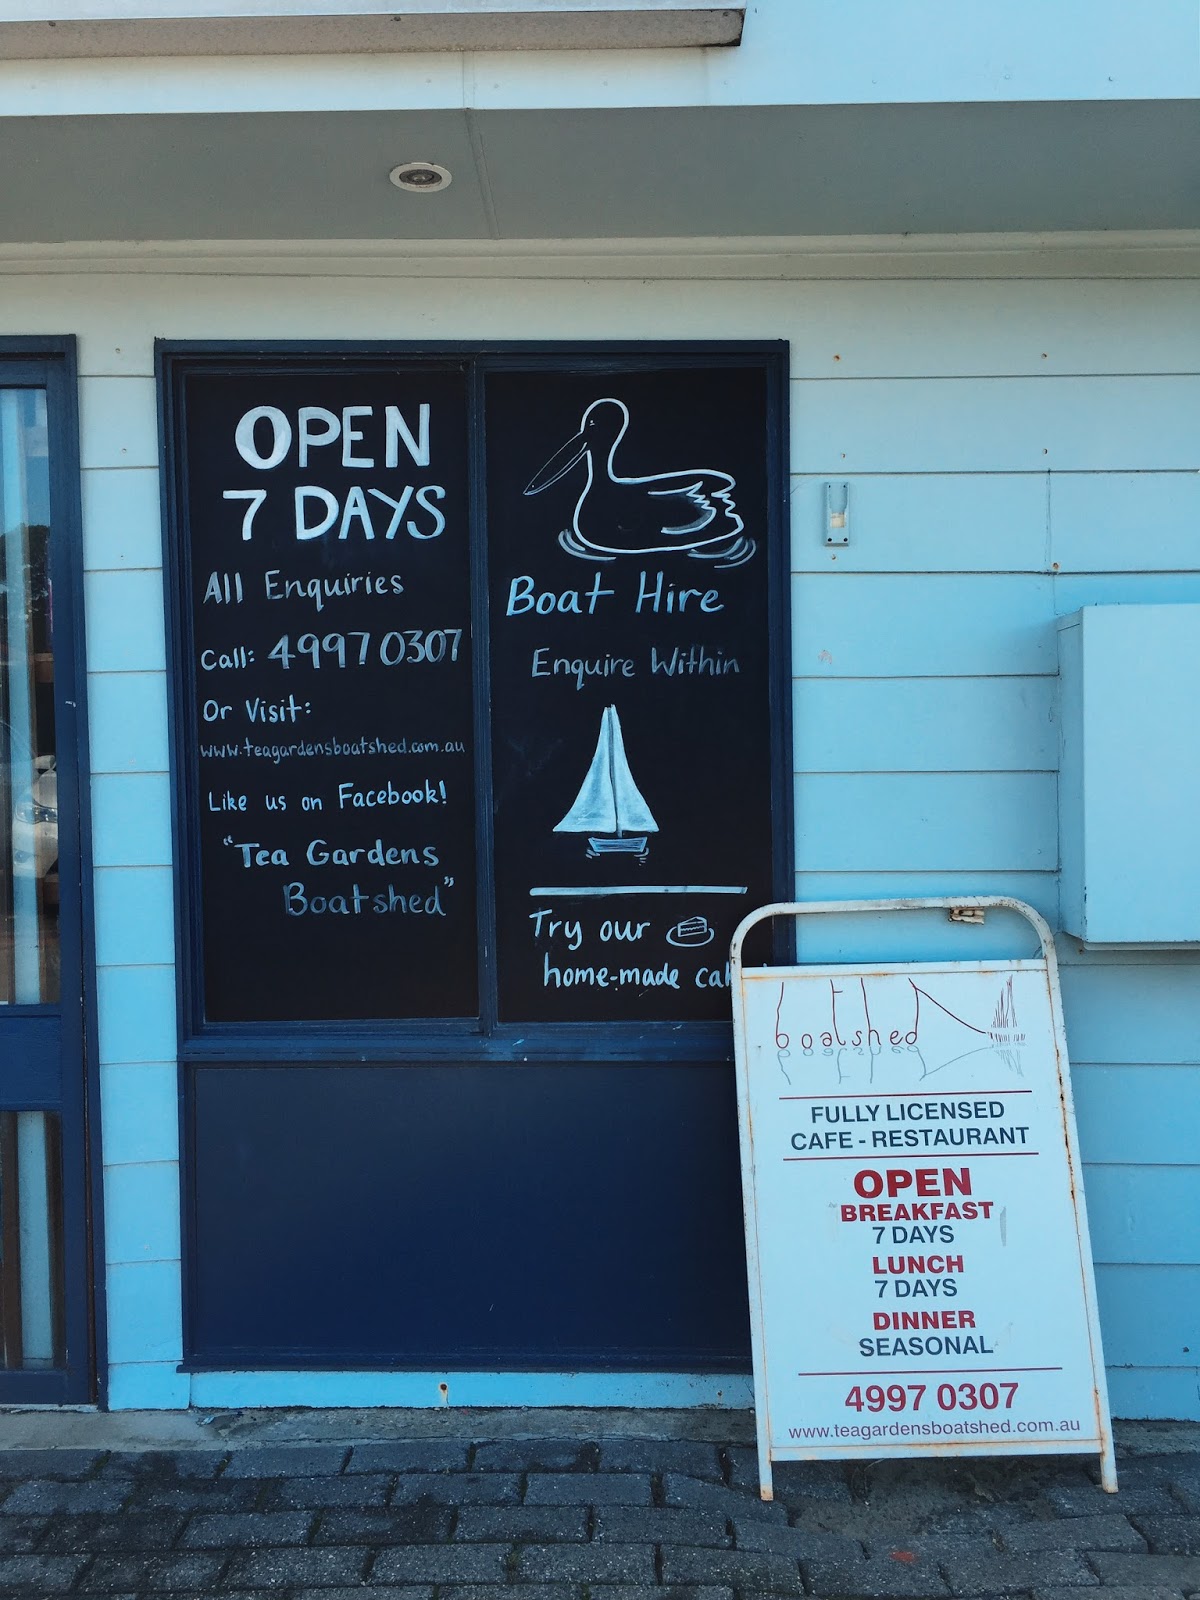 OPEN
7 DAYS
All Enquiries
Call: 4997 0307
Or Visit:
www.teagardensboatshed.com.au
Like us on Facebook!
"Tea Gardens
Boatshed"
Boat Hire
Enquire Within
Try our
home-made
boatshed
FULLY LICENSED
CAFE - RESTAURANT
OPEN
BREAKFAST
7 DAYS
LUNCH
7 DAYS
DINNER
SEASONAL
4997 0307
www.teagardensboatshed.com.au